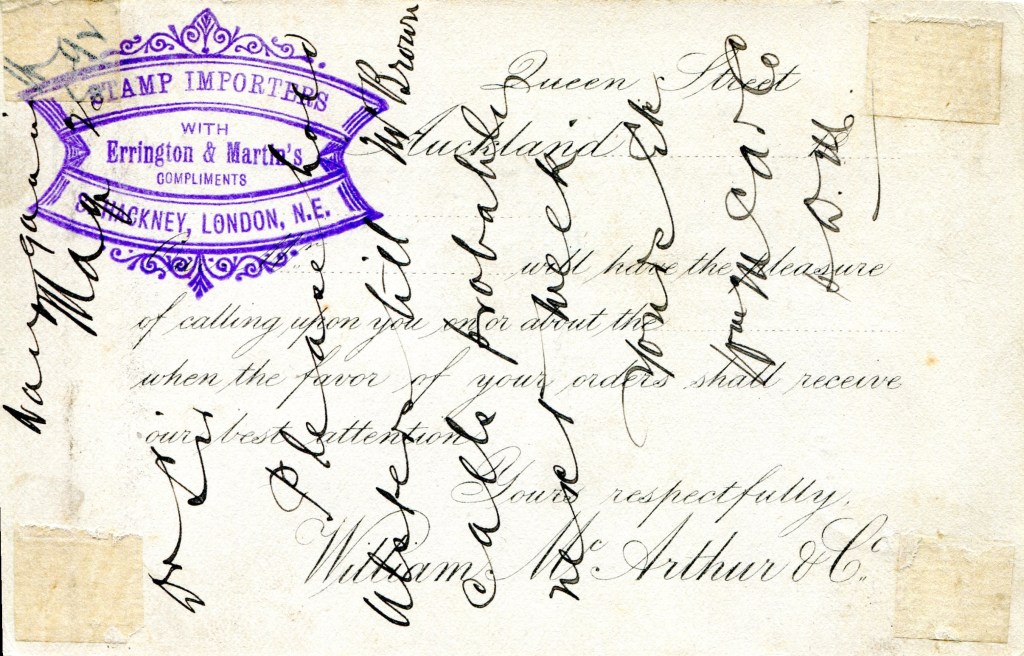 STAMP IMPORTERS
WITH
Errington & Martin's
COMPLIMENTS
S. HACKNEY, LONDON, N.E.
Queen Street
Auckland
Our Mr. will have the pleasure
of calling upon you on or about the
when the favor of your orders shall receive
our best attention
Yours respectfully,
William McArthur & Co.
Wanganui
Dr Sir
Please hold
till Mr Brown
calls probably
next week
Yours